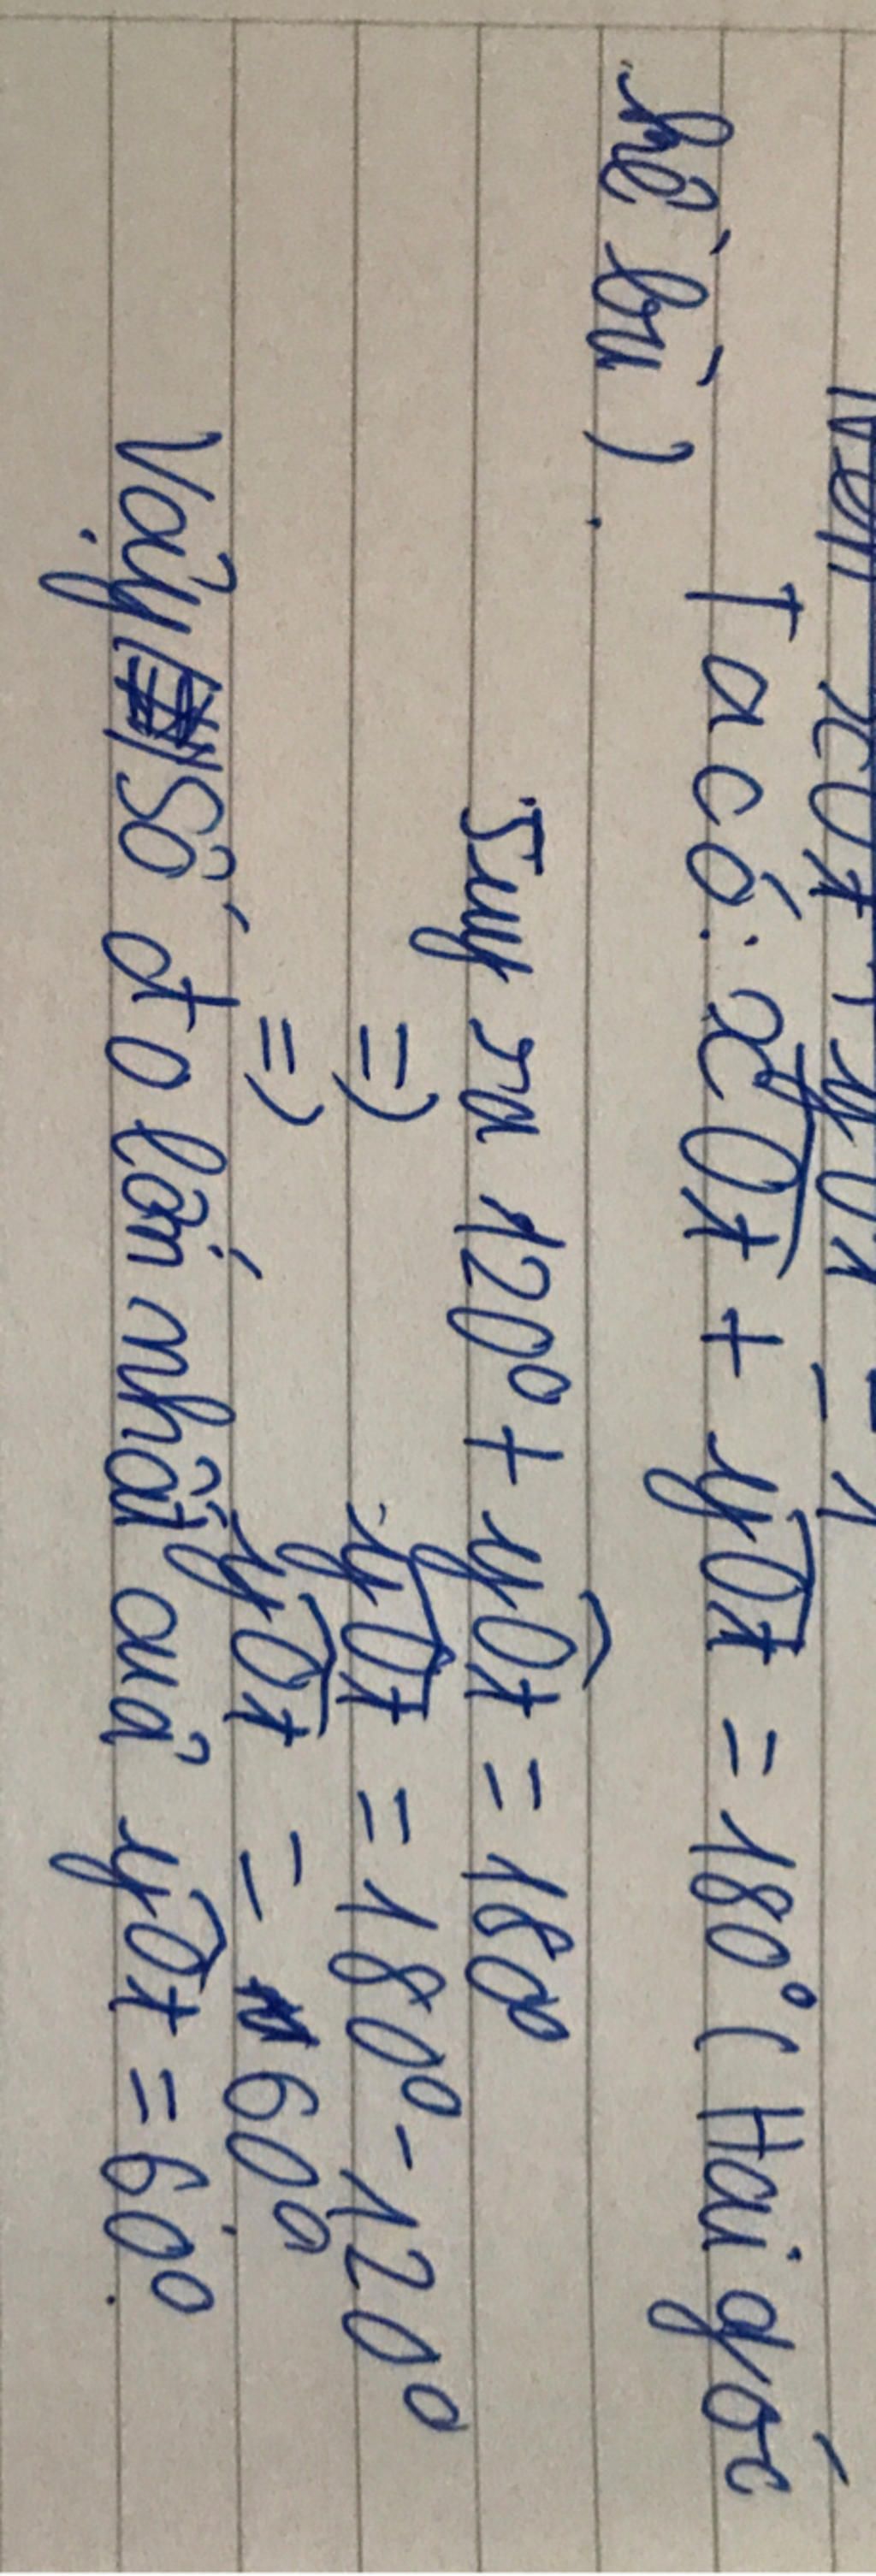 Ta có: xOt + yOt = 180° (Hai góc
kề bù).
Suy ra 120° + yOt = 180
=) yOt = 180° - 120°
=) yOt = 60°
Vậy Số đo lớn nhất của yOt = 60°.